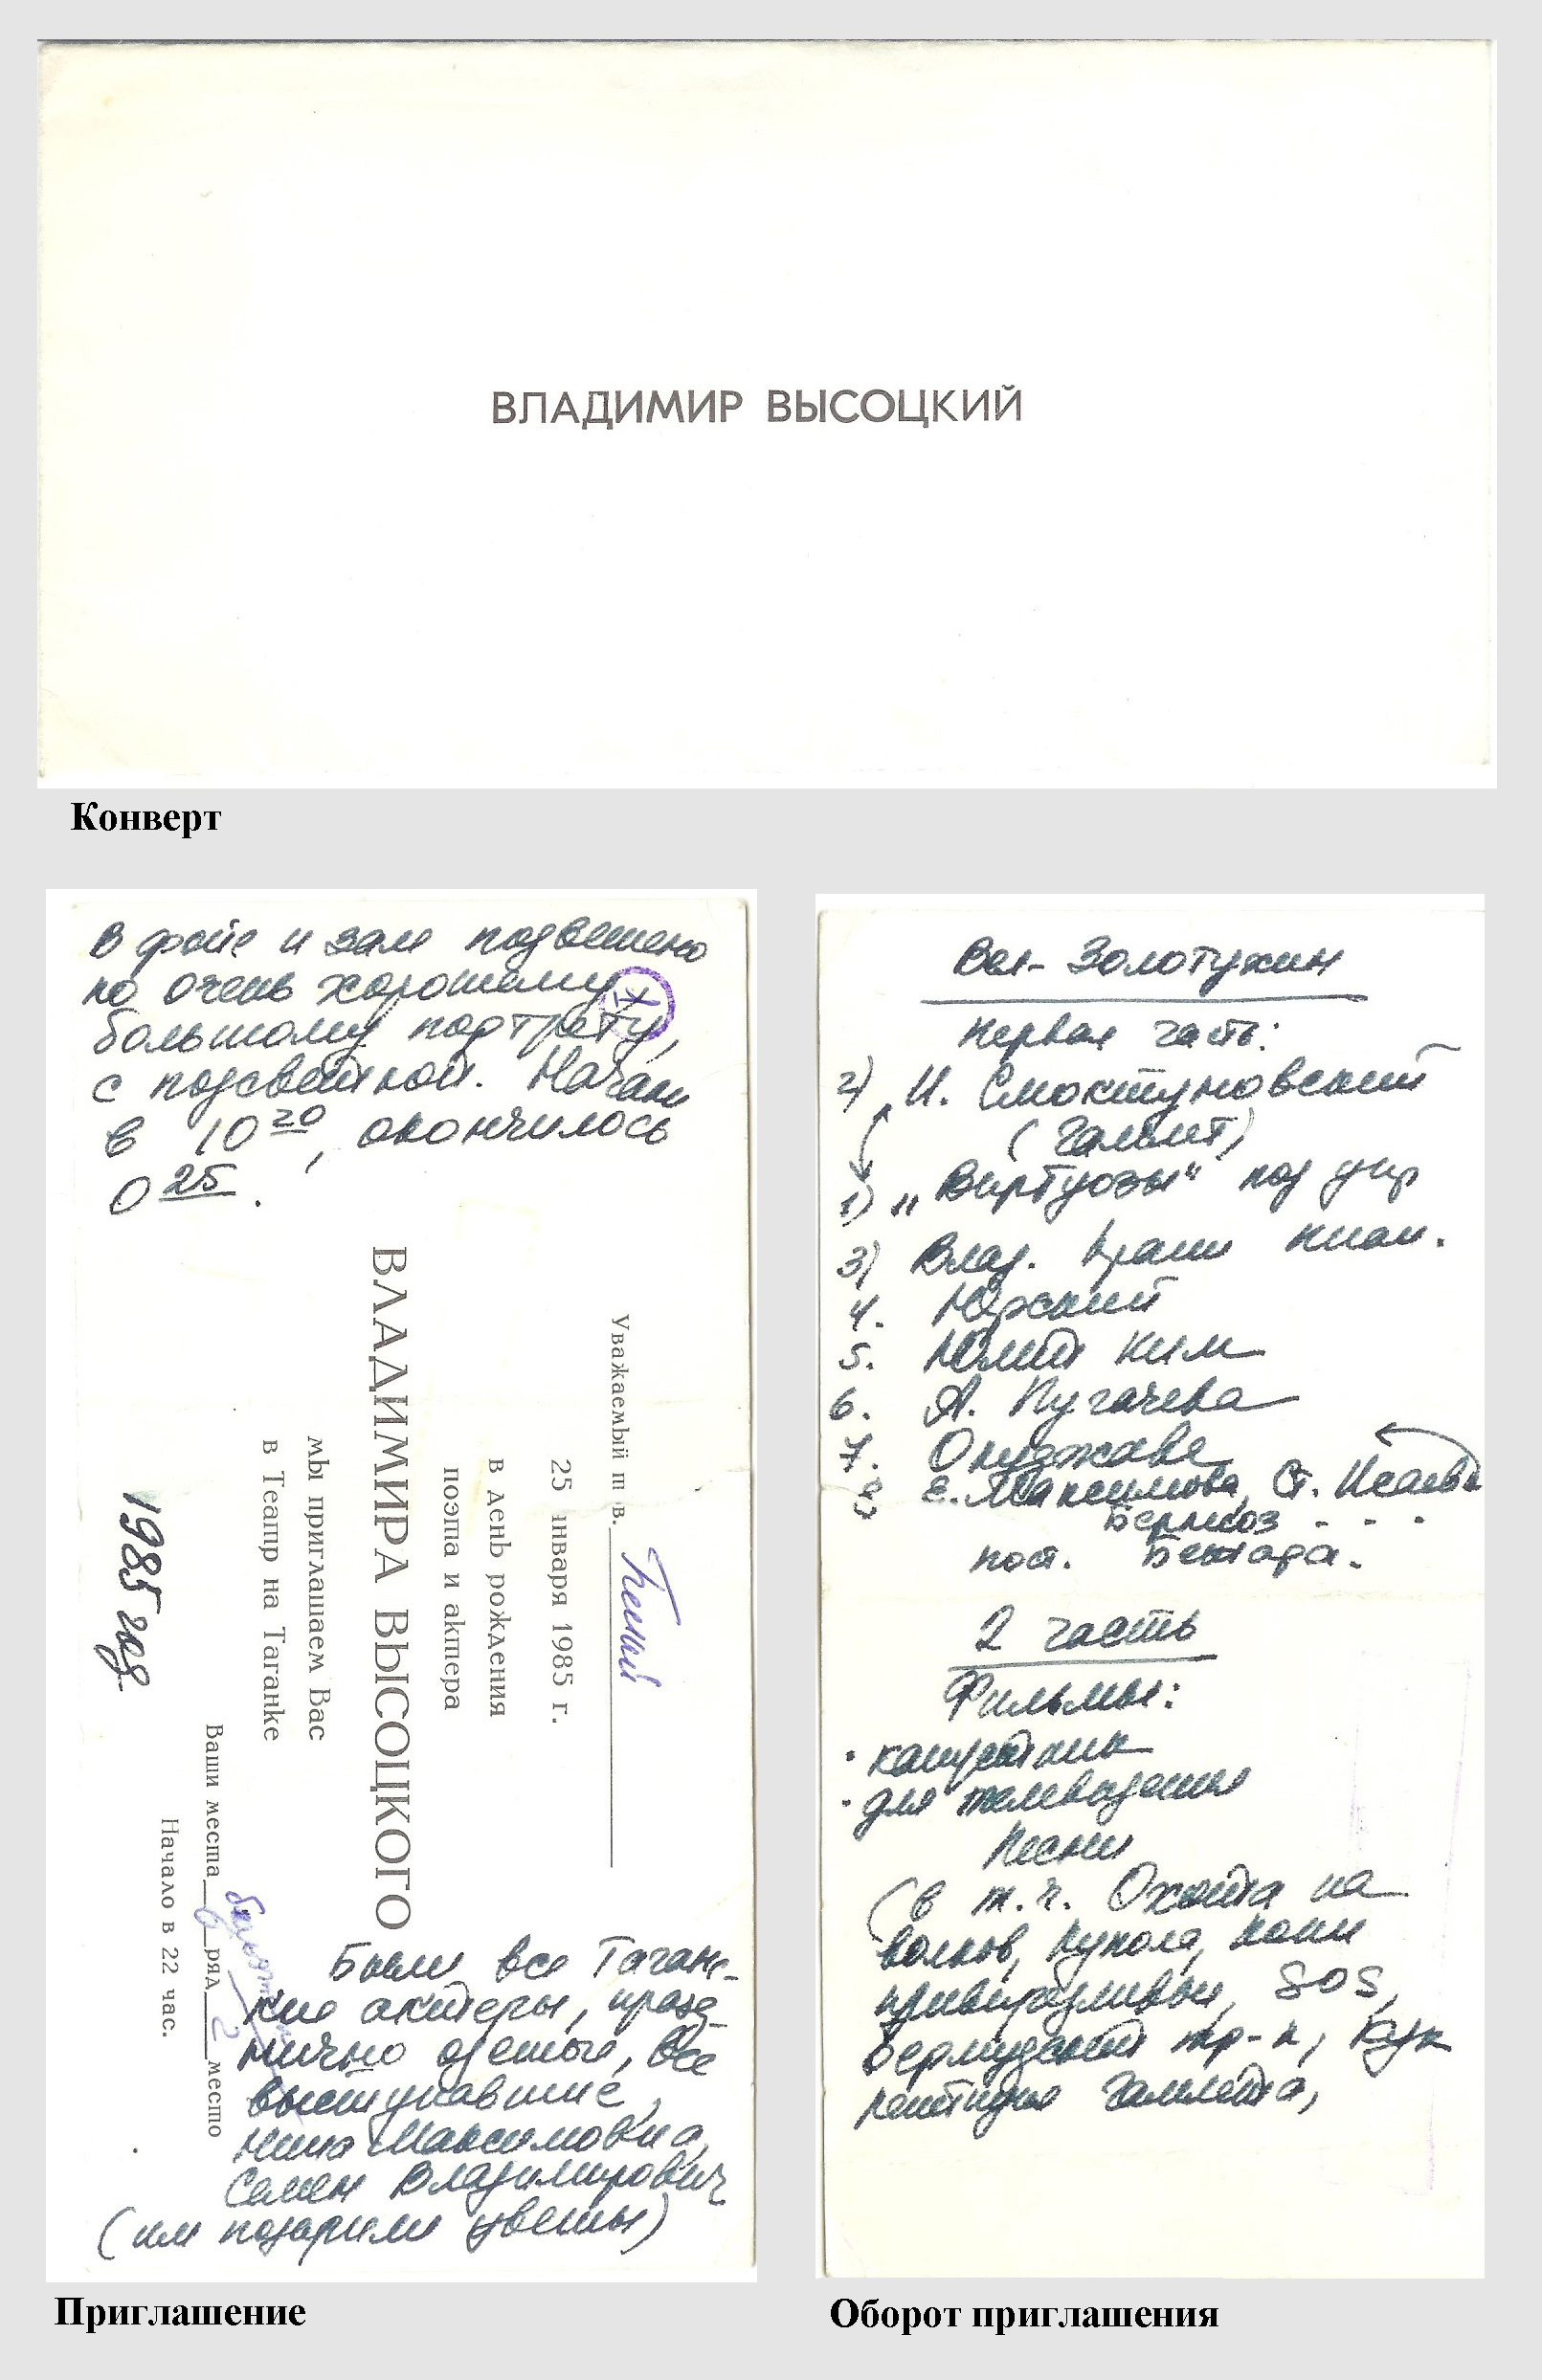 ВЛАДИМИР ВЫСОЦКИЙ
Конверт
В фойе и зале подвешено
по очень хорошему
большому портрету,
с подсветкой. Начали
в 10 20, окончилось
0 25.
Уважаемый т в.
25 января 1985 г.
в день рождения
поэта и актера
ВЛАДИМИРА ВЫСОЦКОГО
мы приглашаем Вас
в Театр на Таганке
Ваши места 6 ряд 2 место
Начало в 22 час.
1985 год
Были все Таганс-
кие актеры, празд-
нично одетые, все
выступавшие,
Нина Максимовна,
Семен Владимирович
(им подарили цветы)
Приглашение
Вел- Золотухин
Первая часть:
2) И. Смоктуновский
(Гамлет)
1) „Виртуозы" под упр
3) Влад. Крайн пиан.
4. Юрский
5. Юлий Ким
6. А. Пугачева
7. Окуджава
8 Е. Максимова, Ст. Исаев
Берлиоз . . .
пост. Бежара.
2 часть
Фильмы:
· капустник
· для телевидения
Песни
(в т.ч. Охота на
волков, Купола, Кони
привередливые, SOS,
Бермудский тр-к, Кук
репетиция Гамлета,
Оборот приглашения